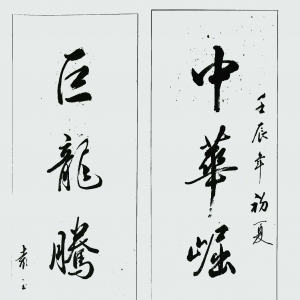 壬辰年初夏
中華崛
巨龍騰